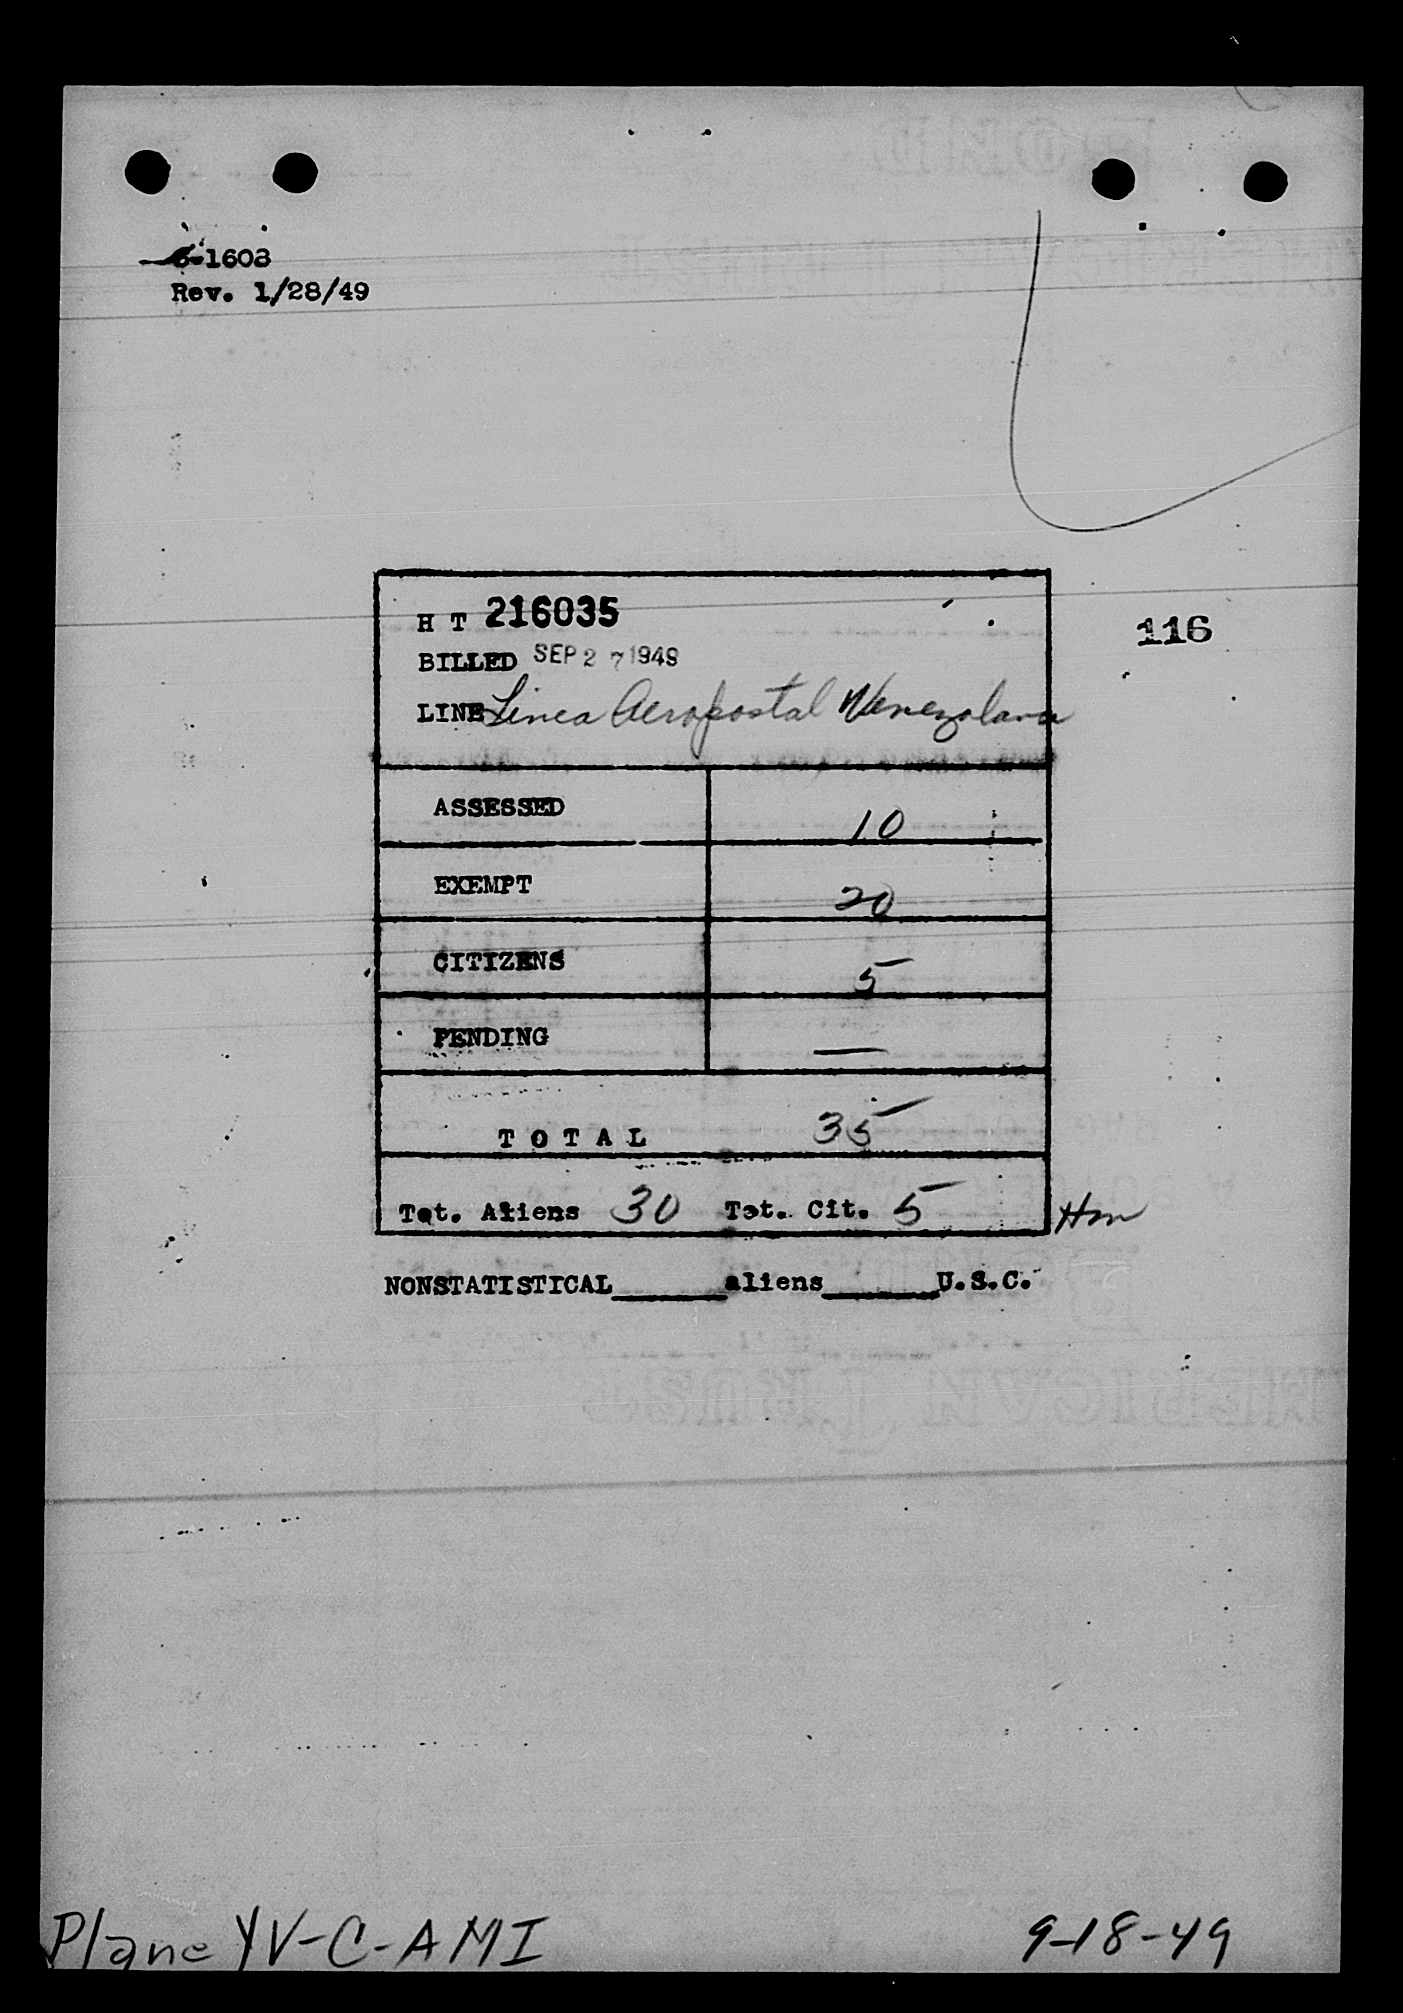 6-1603
Rev. 1/28/49
H T 216035
116
BILLED SEP 27 1949
LINE Linea Aeropostal Venezolana
ASSESSED 10
EXEMPT 20
CITIZENS 5
PENDING —
T O T A L 35
Tot. Aliens 30 Tot. Cit. 5 Hm
NONSTATISTICAL______aliens______U.S.C.
Plane YV-C-AMI 9-18-49